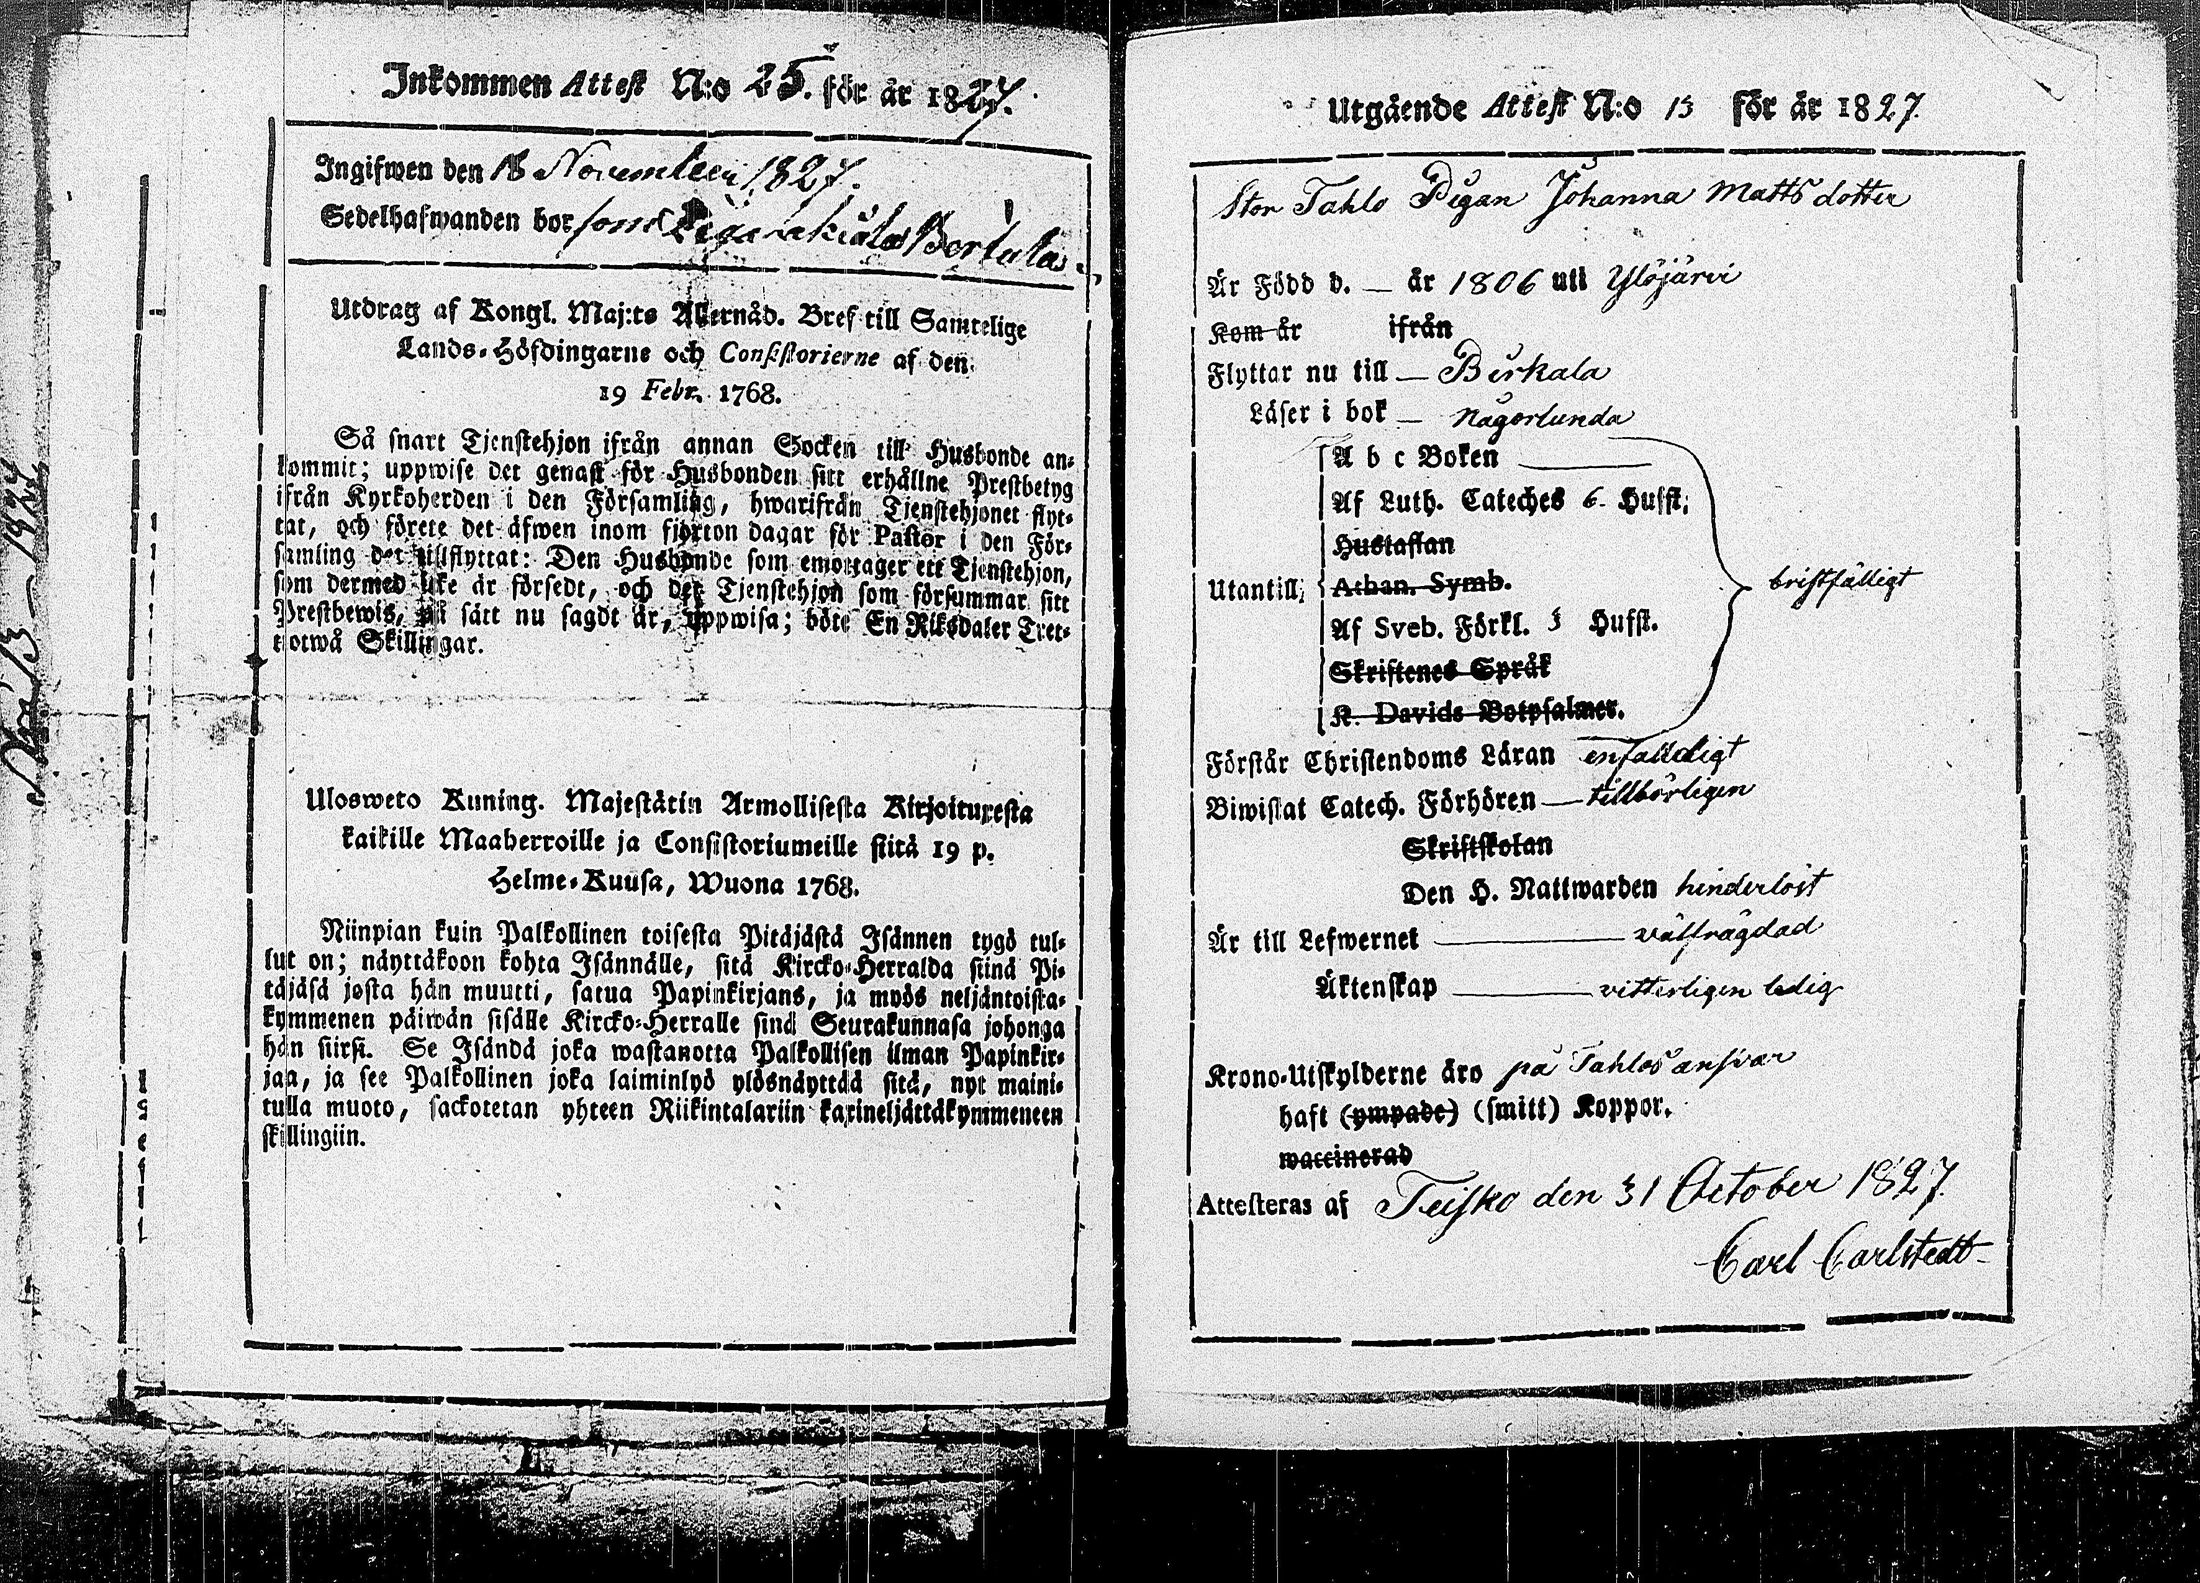 Inkommen Attest N:o 25. för år 1827.
Ingifwen den 18 November 1827.
Sedelhafwanden bor som Piga
Utdrag af Kongl. Maj:ts Allernåd. Bref till Samtelige
Lands-Höfdingarne och Consistorierne af den
19 Febr. 1768.
Så snart Tjenstehjon ifrån annan Socken till Husbonde an-
kommit; uppwise det genast för Husbonden sitt erhållne Prestbetyg
ifrån Kyrkoherden i den Församling, hwarifrån Tjenstehjonet flyt-
tat, och förete det äfwen inom fjorton dagar för Pastor i den För-
samling det tillflyttat: Den Husbonde som emottager ett Tjenstehjon,
som dermed icke är försedt, och det Tjenstehjon som försummar sitt
Prestbewis, på sätt nu sagdt är, uppwisa; böte En Riksdaler Tret-
tiotwå Skillingar.
Ulosweto Kuning. Majestätin Armollisesta Kirjoituxesta
kaikille Maaherroille ja Consistoriumeille siitä 19 p.
Helme-Kuusa, Wuona 1768.
Niinpian kuin Palkollinen toisesta Pitäjästä Isännen tygö tul-
lut on; näyttäkoon kohta Isännälle, sitä Kircko-Herralda siinä Pi-
täjäsä josta hän muutti, saatua Papinkirjans, ja myös neljäntoista-
kymmenen päiwän sisälle Kircko-Herralle sinä Seurakunnasa johonga
hän siirsi. Se Isändä joka wastanotta Palkollisen ilman Papinkir-
jaa, ja see Palkollinen joka laiminlyö ylösnäyttää sitä, nyt maini-
tulla muoto, sackotetan yhteen Riikintalariin kaxineljättäkymmeneen
skillingiin.
Utgående Attest N:o 13 för år 1827.
Stor Tahlo Pigan Johanna Matts dotter
Är Född d. — år 1806 uti Ylöjärvi
Kom år ifrån
Flyttar nu till — Birkala
Läser i bok — någorlunda
A b c Boken
Af Luth. Cateches 6. Hufst;
Hustaflan
Utantill; Athan. Symb. bristfälligt
Af Sveb. Förkl. 3 Hufst.
Skriftenes Språk
K. Davids Botpsalmer.
Förstår Christendoms Läran enfaldeligt
Biwistat Catech. Förhören — tillbörligen
Skriftskolan
Den H. Nattwarden hinderlöst
Är till Lefwernet — välfrägdad
Äktenskap — vitterligen ledig
Krono-Utskylderne äro på Tahlos ansvar
haft (ympade) (smitt) Koppor.
waccinerad
Attesteras af Teisko den 31 October 1827.
Carl Carlstedt